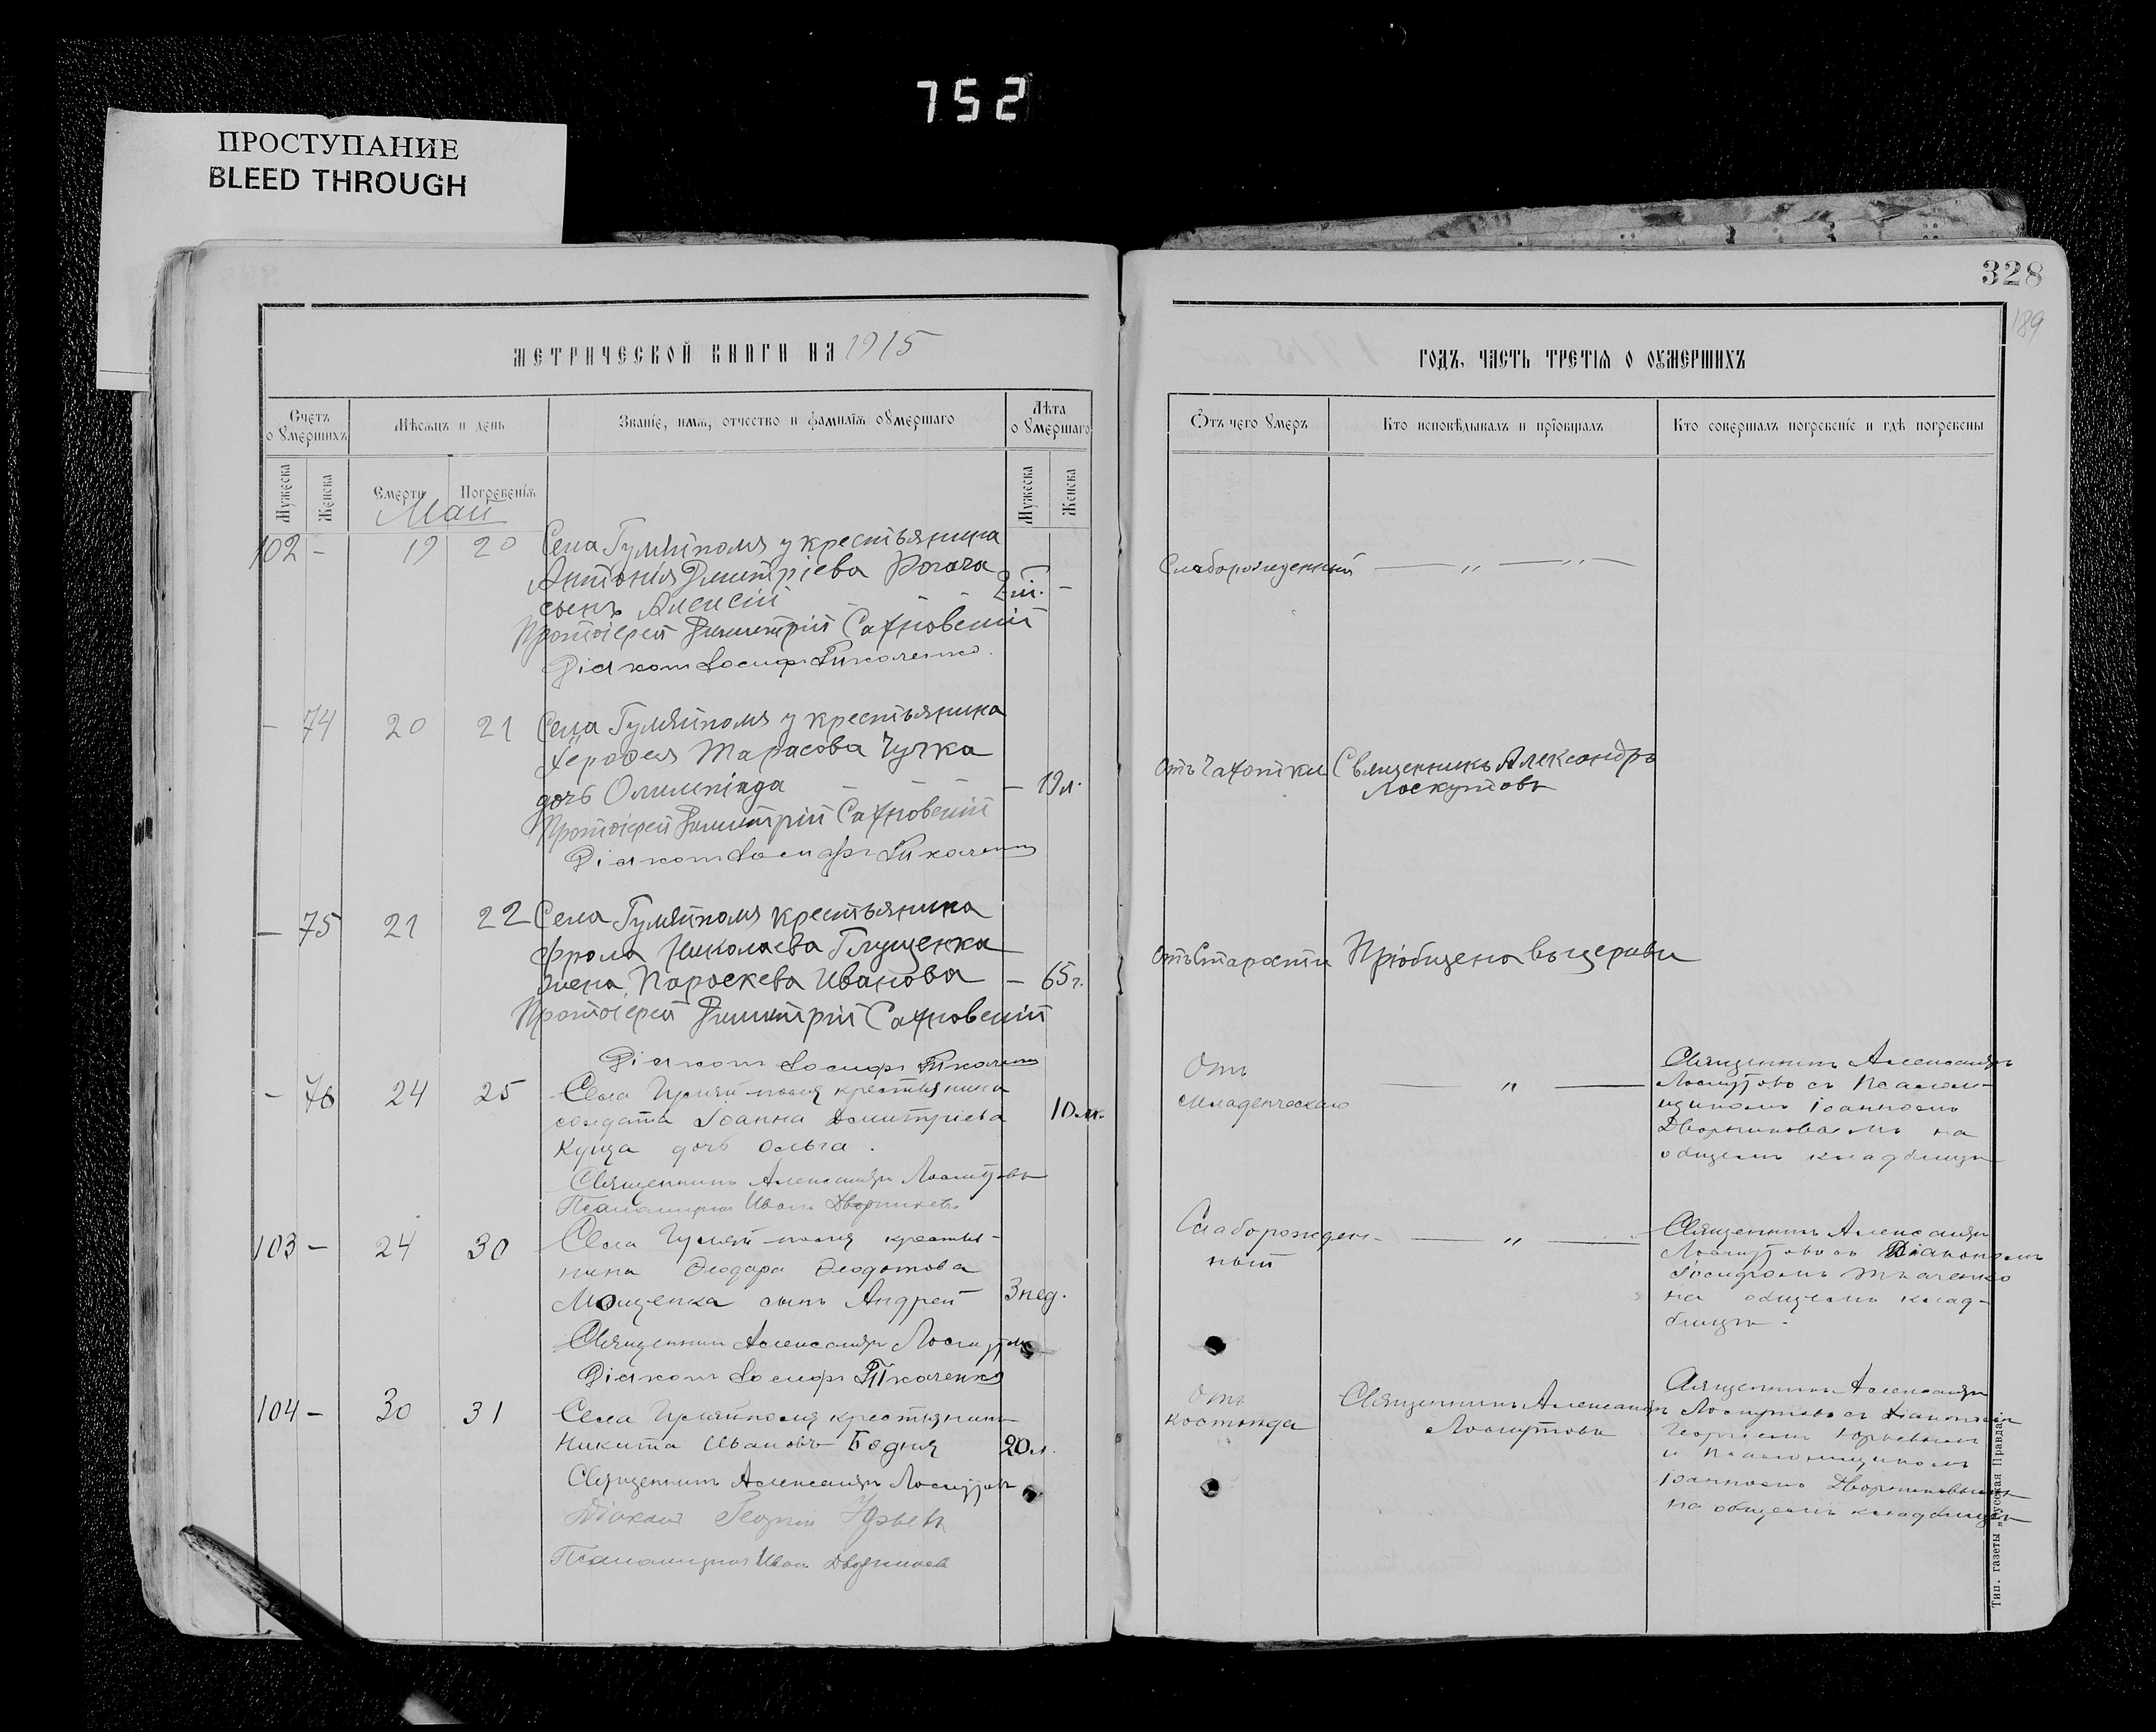 752
ПРОСТУПАНИЕ
BLEED THROUGH
328
189
МЕТРИЧЕСКОЙ КНИГИ НА 1915
ГОДЪ, ЧАСТЬ ТРЕТІЯ О ОУМЕРШИХЪ
Счетъ о Умершихъ
Мѣсяцъ и день
Званіе, имя, отчество и фамилія оумершаго
Лѣта о Умершаго
Отъ чего Умеръ
Кто исповѣдывалъ и пріобщалъ
Кто совершалъ погребеніе и гдѣ погребены
Мужеска Женска Смерти Погребенія Мужеска Женска
Май
102 - 19 20 Села Гуляйполя у крестьянина
Антонія Дмитріева Рогача
сынъ Алексій 2 м. -
Протоіерей Димитрій Сахновскій
Діаконъ Іосифъ Ткаченко.
Слаборожденный — „ — „ —
- 74 20 21 Села Гуляйполя у крестьянина
Тарасова Чучка
дочь Олимпіада - 19 л.
Протоіерей Димитрій Сахновскій
Діаконъ Іосифъ Ткаченко
Отъ Чахотки Священникъ Александръ
Лоскутовъ
- 75 21 22 Села Гуляйполя крестьянина
Фрола Николаева Глущенка
жена Параскева Иванова - 65 г.
Протоіерей Димитрій Сахновскій
Діаконъ Іосифъ Ткаченко
Отъ Старости Пріобщена въ церкви
- 76 24 25 Села Гуляй-поля крестьянина
солдата Іоанна Димитріева
Куца дочь Ольга. 10 м.
Священникъ Александръ Лоскутовъ
Псаломщикъ Иванъ Дворниковъ
Отъ
младенческаго
„ —
Священникъ Александръ
Лоскутовъ съ псалом-
щикомъ Іоанномъ
Дворниковымъ на
общемъ кладбищѣ
103 - 24 30 Села Гуляй-поля крестья-
нина Ѳеодора Ѳеодотова
Мощенка сынъ Андрей 3 нед.
Священникъ Александръ Лоскутовъ
Діаконъ Іосифъ Ткаченко
Слаборожден-
ный
— „ —
Священникъ Александръ
Лоскутовъ съ Діакономъ
Іосифомъ Ткаченко
на общемъ клад-
бищѣ.
104 - 30 31 Села Гуляйполя крестьянинъ
Никита Ивановъ Бодня 20 л.
Священникъ Александръ Лоскутовъ
Діаконъ Георгій Юрьевъ
Псаломщикъ Иванъ Дворниковъ
Отъ
костоѣда
Священникъ Александръ
Лоскутовъ
Священникъ Александръ
Лоскутовъ съ Діакономъ
Георгіемъ Юрьевымъ
и псаломщикомъ
Іоанномъ Дворниковымъ
на общемъ кладбищѣ
Тип. газеты „Русская Правда“